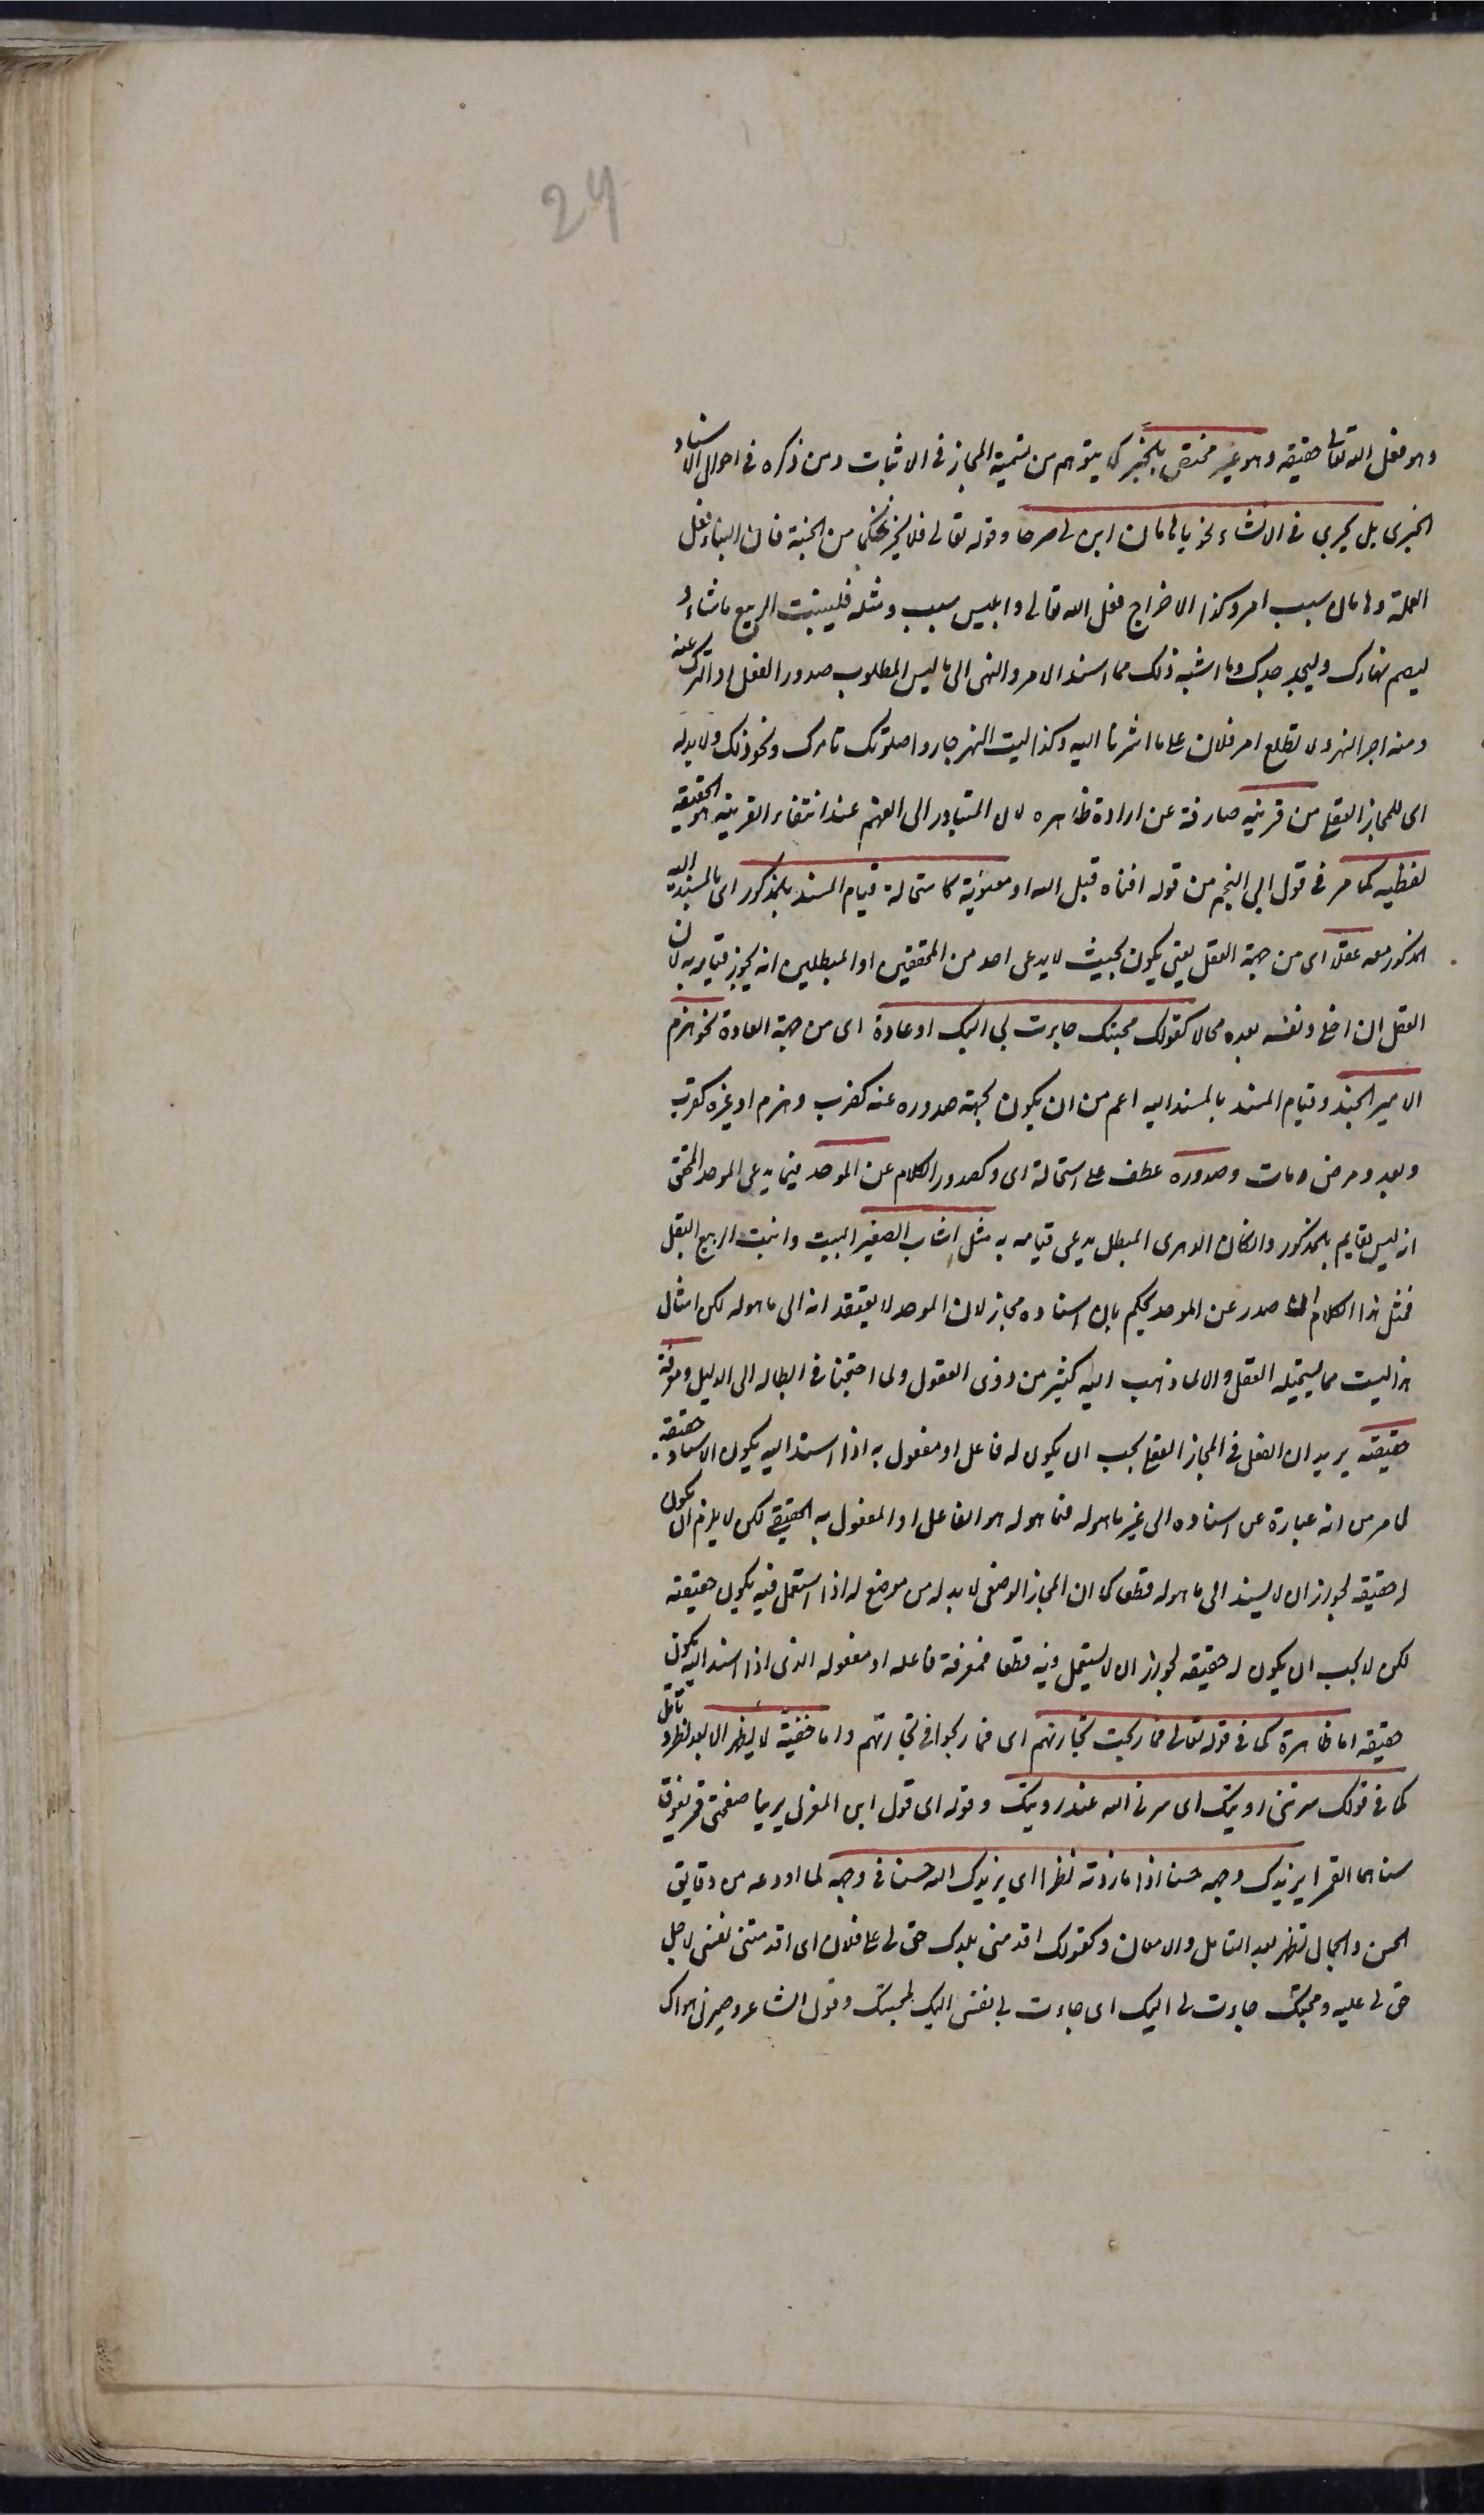 24
وهو فعل الله تعالى حقيقة وهو غير مختص بالخبر كما يتوهم من تسمية المجاز في الاثبات ومن ذكره في احوال الاسناد
الخبرى بل يجرى فى الانشاء نحو يا هامان ابن لى صرحا وقوله تعالى فلا يخرجنكما من الجنة فان البناء فعل
العملة وهامان سبب امر وكذا الاخراج فعل الله تعالى وابليس سبب ومثله فلينبت الربيع ما شاء و
ليصم نهارك وليجد جدك وما اشبه ذلك مما اسند الامر والنهى الى ما ليس المطلوب صدور الفعل او الترك عنه
ومنه اجر النهر ولا تطلع امر فلان على ما اشرنا اليه وكذا ليت النهر جار واصلوتك تامرك ونحو ذلك ولا بد له
اى للمجاز العقلى من قرينة صارفة عن ارادة ظاهره لان المتبادر الى الفهم عند انتفاء القرينة هو الحقيقة
لفظية كما مر فى قول ابى النجم من قوله افناه قيل الله او معنوية كاستحالة قيام المسند بالمذكور اى بالمسند اليه
المذكور معه عقلا اى من جهة العقل يعنى يكون بحيث لا يدعى احد من المحققين او المبطلين انه يجوز قيامه به لان
العقل ان اخلى ونفسه يعده محالا كقولك محبتك جاءت بى اليك او عادة اى من جهة العادة نحو هزم
الامير الجند وقيام المسند بالمسند اليه اعم من ان يكون بجهة صدوره عنه كضرب وهزم او غيره كقرب
وبعد ومرض ومات وصدوره عطف على استحالة اى وكصدور الكلام عن الموحد فيما يدعى الموحد المحق
انه ليس بقايم بالمذكور وان كان الدهرى المبطل يدعى قيامه به مثل اشاب الصغير البيت وانبت الربيع البقل
فمثل هذا الكلام اذا صدر عن الموحد يحكم بان اسناده مجاز لان الموحد لا يعتقد انه الى ما هو له لكن امثال
هذا ليست مما يستحيله العقل والا لما ذهب اليه كثير من ذوى العقول ولما احتجنا فى ابطاله الى الدليل ومعرفة
حقيقته يريد ان الفعل فى المجاز العقلى يجب ان يكون له فاعل او مفعول به اذا اسند اليه يكون الاسناد حقيقة
لما مر من انه عبارة عن اسناده الى غير ما هو له فما هو له هو الفاعل او المفعول به الحقيقى لكن لا يلزم ان يكون
له حقيقة لجواز ان لا يسند الى ما هو له قطعا كما ان المجاز الوضعى لا بد له من موضع له اذا استعمل فيه يكون حقيقة
لكن لا يجب ان يكون له حقيقة لجواز ان لا يستعمل فيه قطعا فمعرفة فاعله او مفعوله الذى اذا اسند اليه يكون
حقيقة اما ظاهرة كما فى قوله تعالى فما ربحت تجارتهم اى فما ربحوا فى تجارتهم واما خفية لا يظهر الا بعد نظر وتامل
كما فى قولك سرتنى رويتك اى سرنى الله عند رويتك وقوله اى قول ابن المعذل يرينا صفحتى قمر يفوق
سناهما القمرا يزيدك وجهه حسنا اذا ما زدته نظرا اى يزيدك الله حسنا فى وجهه لما اودعه من دقايق
الحسن والجمال تظهر بعد التامل والامعان وكقولك اقدمنى بلدك حق لى على فلان اى اقدمتنى نفسى لاجل
حق لى عليه ومحبتك جاءت بى اليك اى جاءت بى نفسى اليك لمحبتك وقول الشاعر وصيرنى هواك